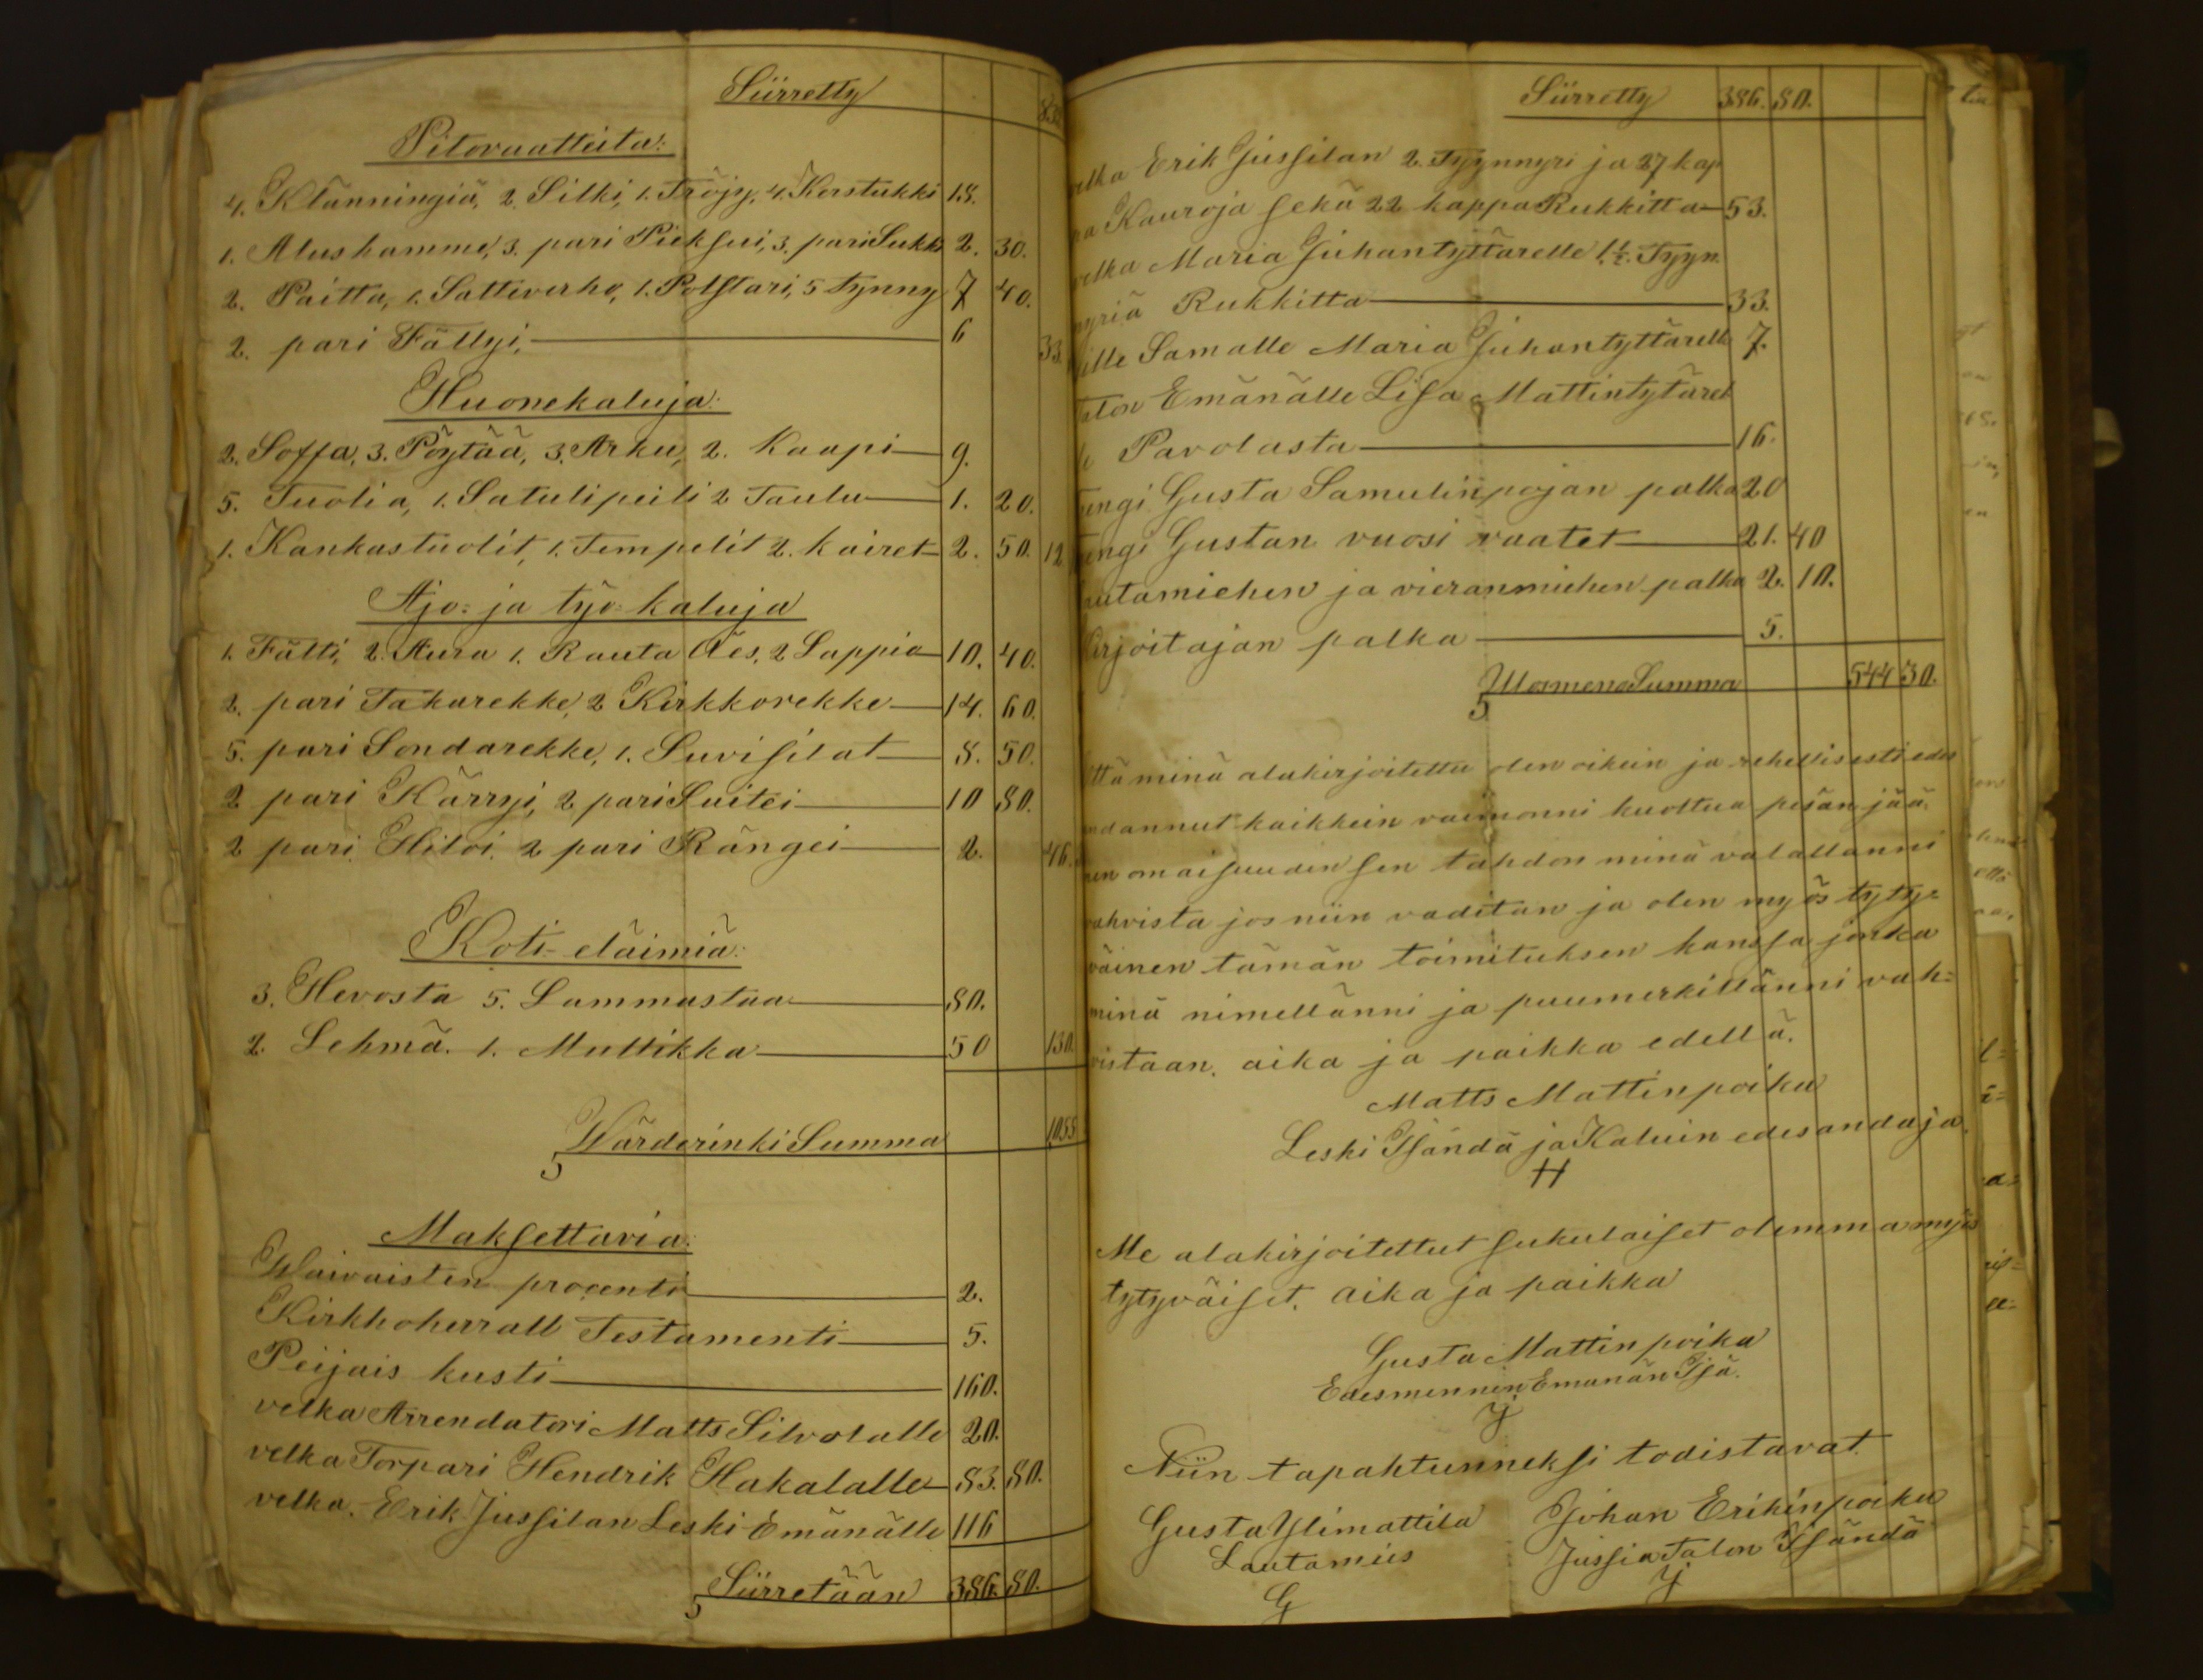 Siirretty
Pitovaatteita:
4. Klänningiä, 2. Silki, 1. Tröjy, 4. Korstukki 18.
1. Alushamme, 3. pari Pieksui, 3. pari Sukki 2. 30.
2. Paitta, 1. Sattiverho, 1. Polstari, 5 tynny 7 40.
2. pari Fällyi, 6 33.
Huonekaluja:
2. Soffa, 3. Pöytää, 3. Arku, 2. Kaapi 9.
5. Tuolia, 1. Satulipeili 2 Taulu 1. 20.
1. Kankastuolit, 1. Tempelit 2. kairet 2. 50. 12
Ajo- ja työ-kaluja
1. Fälti, 2. Aura 1. Rauta Äes, 2 Lappia 10. 40.
2. pari Takarekke, 2 Kirkkorekke 14. 60.
5. pari Sondarekke, 1. Suvisilat 8. 50.
2 pari Kärryi, 2 pari Suitei 10 80.
2 pari Hiloi, 2 pari Rängei 2. 46.
Koti-eläimiä:
3. Hevosta 5. Lammastaa 80.
2. Lehmä. 1. Mullikka 50 130.
Wärderinki Summa 1055
Maksettavia:
Waivaisten procenti 2.
Kirkhoherrall Testamenti 5.
Peijais kusti 160.
velka Arrendatori Matts Silvolalle 20.
velka Torpari Hendrik Hakalalle 83. 80.
velka. Erik Jussilan Leski Emänälle 116
Siirretään 386. 80.
Siirretty 386. 80.
velka Erik Jussilan 2. Tyynnyri ja 27 kap
pa Kauroja sekä 22 kappa Rukkitta 53.
velka Maria Juhantyttärelle 1 1/2. Tyyn
nyriä Rukkitta 33.
sille Samalle Maria Juhantyttärelle 7.
Talon Emänälle Lisa Mattintytärel
le Pavolasta 16.
Rengi Gusta Samulinpojan palka 20
Rengi Gustan vuosi vaatet 21. 40
Lautamiehen ja vieranmiehen palka 2. 10.
Kirjoitajan palka 5.
Ulosmeno Summa 544 30.
Että minä alakirjoitettu olen oikein ja rehellisesti edes
andannut kaikkein vaimonni kuoltua pesän jää-
nen omaisuuden sen tahdon minä valallanni
vahvista jos niin vaditan ja olen myös tyty-
väinen tämän toimituksen kanssa jonka
minä nimellänni ja puumerkillänni vah-
vistaan. aika ja paikka edellä.
Matts Mattinpoika
Leski Isändä ja Kaluin edesandaja.
H
Me alakirjoitettut sukulaiset olemma myös
tytyväiset. aika ja paikka
Gusta Mattinpoika
Edesmennen Emänän Isä.
Niin tapahtunneksi todistavat.
Gusta Ylimattila
Lautamies
G
Johan Erikinpoika
Jussin Talon Isändä